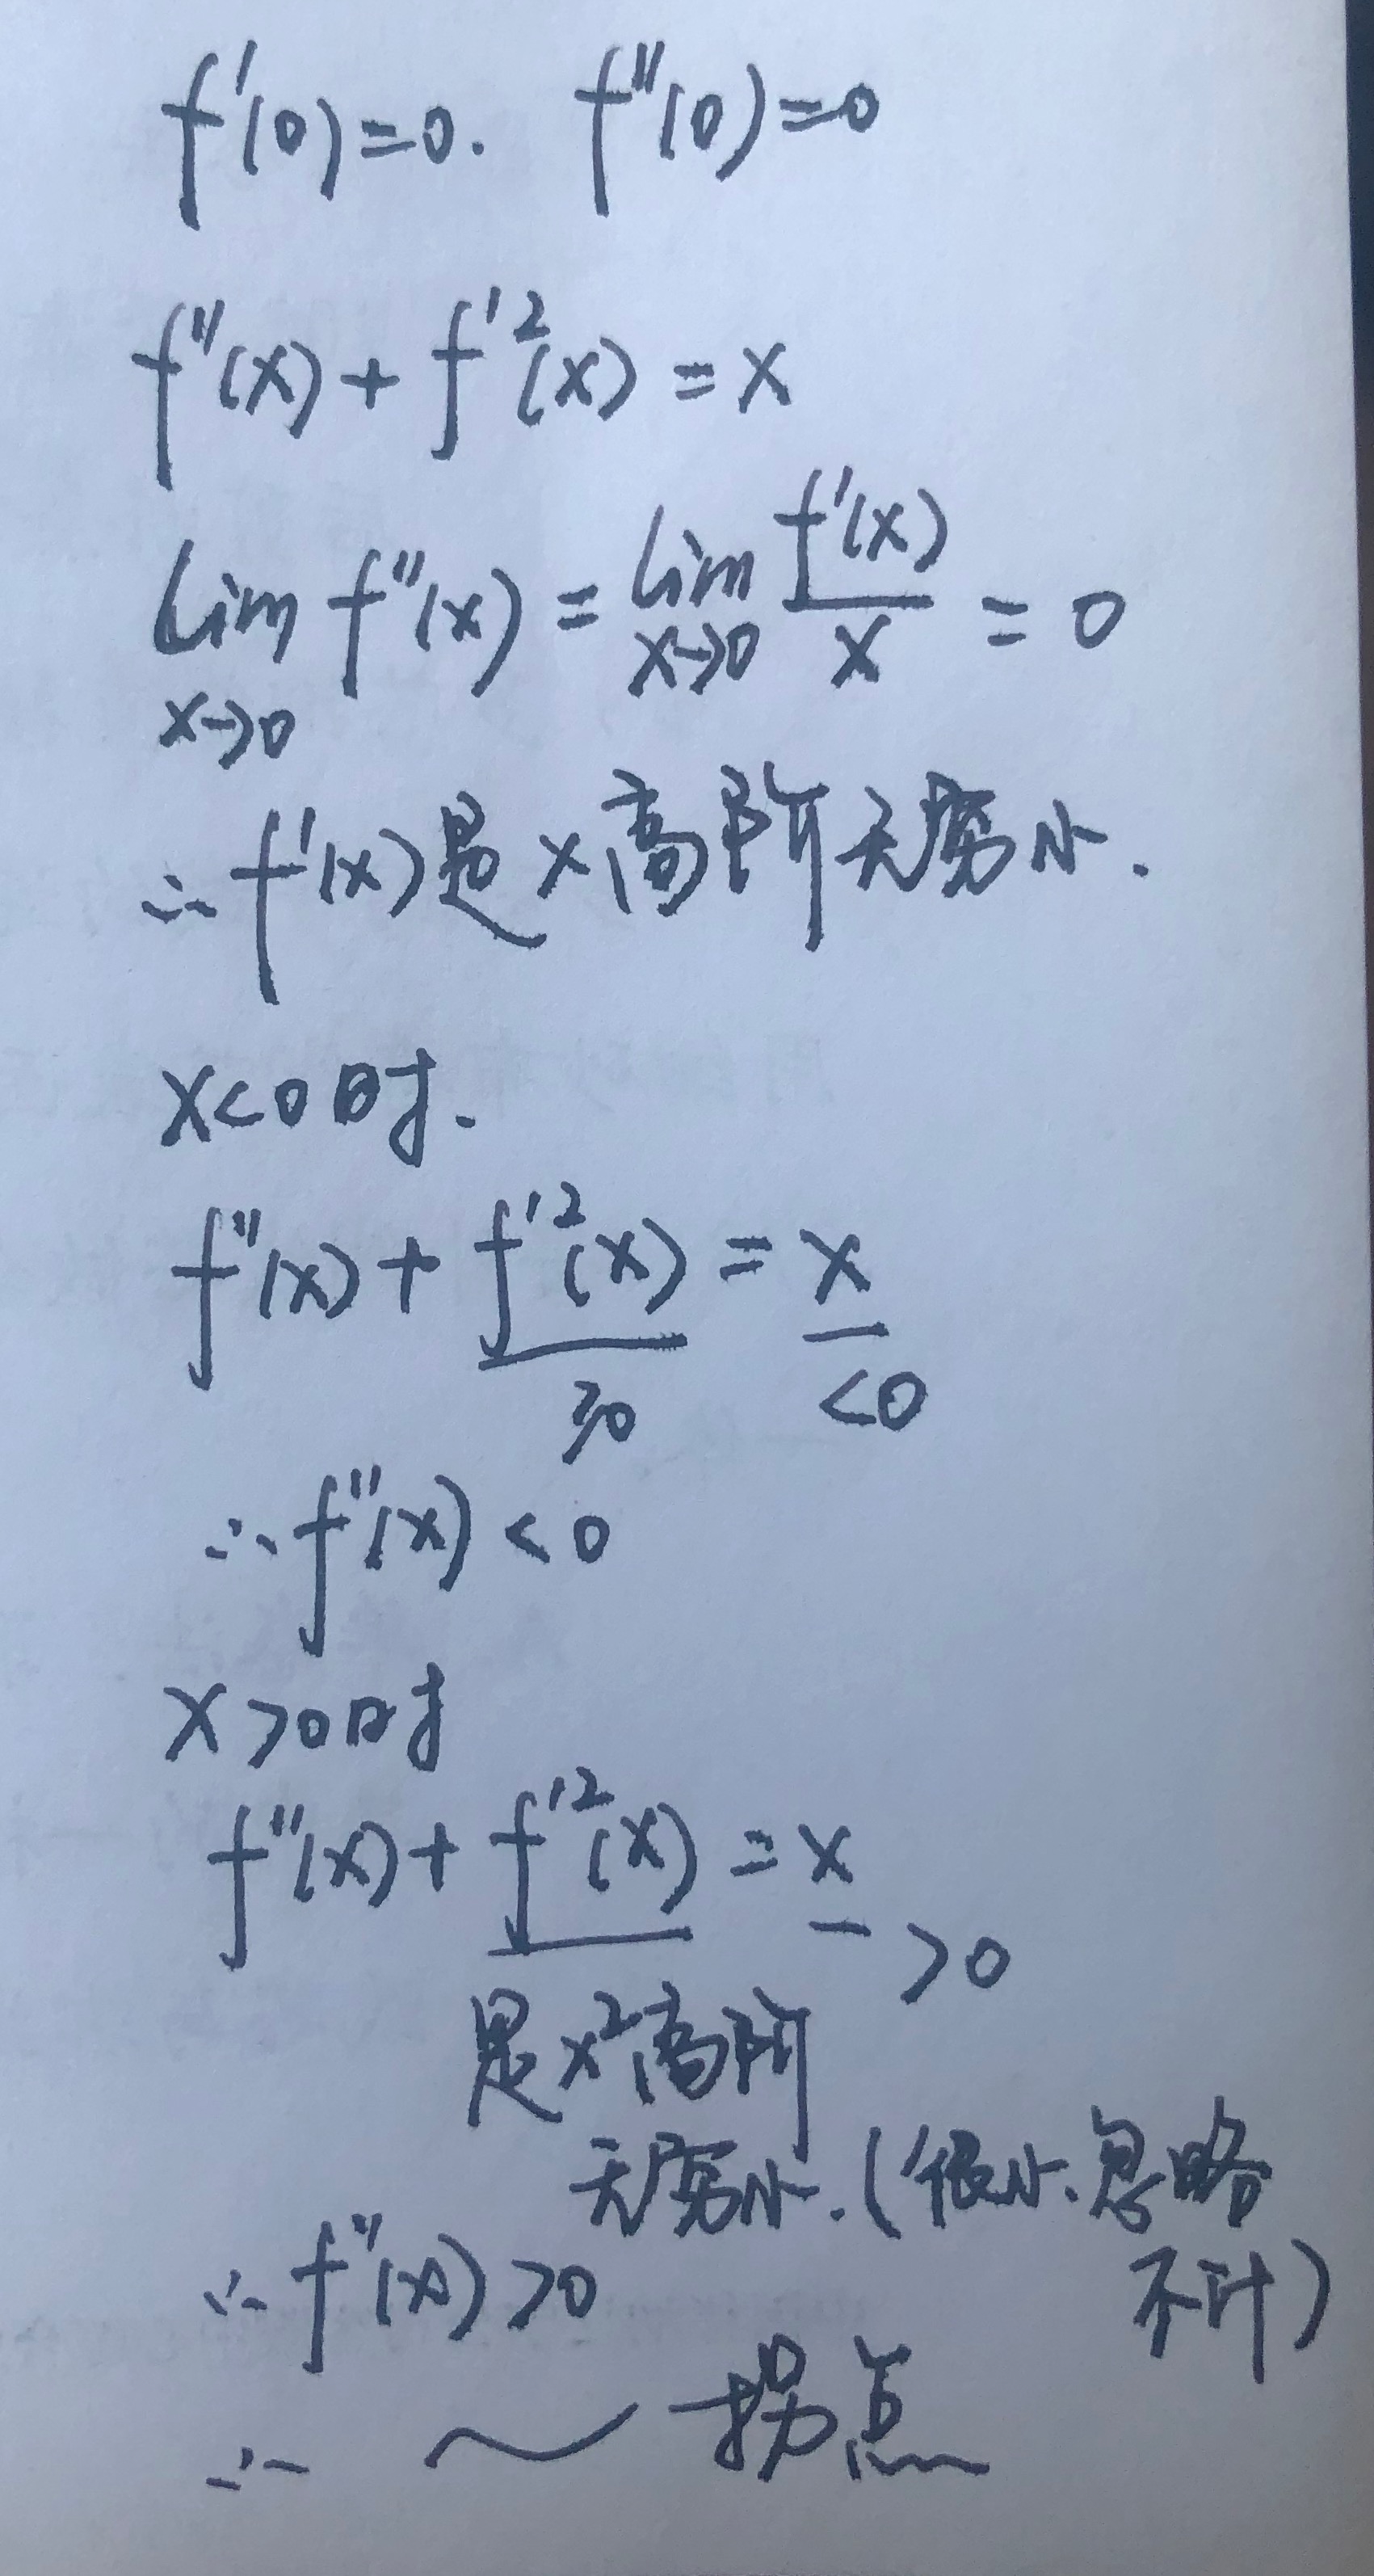 f'(0)=0. f''(0)=0
f''(x)+f'²(x)=x
lim f''(x)=lim f'(x)/x=0
x→0 x→0
∴f'(x)是x高阶无穷小.
x<0时.
f''(x)+f'²(x)=x
≥0 <0
∴f''(x)<0
x>0时
f''(x)+f'²(x)=x
>0
是x²高阶
无穷小.(很小、忽略
不计)
∴f''(x)>0
∴ ~ 拐点